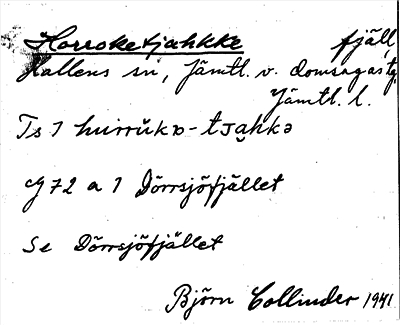 Horroketjahkke fjäll,
Kallens sn, Jämtl. v. domsagas tg.
Jämtl. l.
Ts 1 hurrŭkʊ-tjahkə
G 72 a 1 Dörrsjöfjället
Se Dörrsjöfjället
Björn Collinder 1941